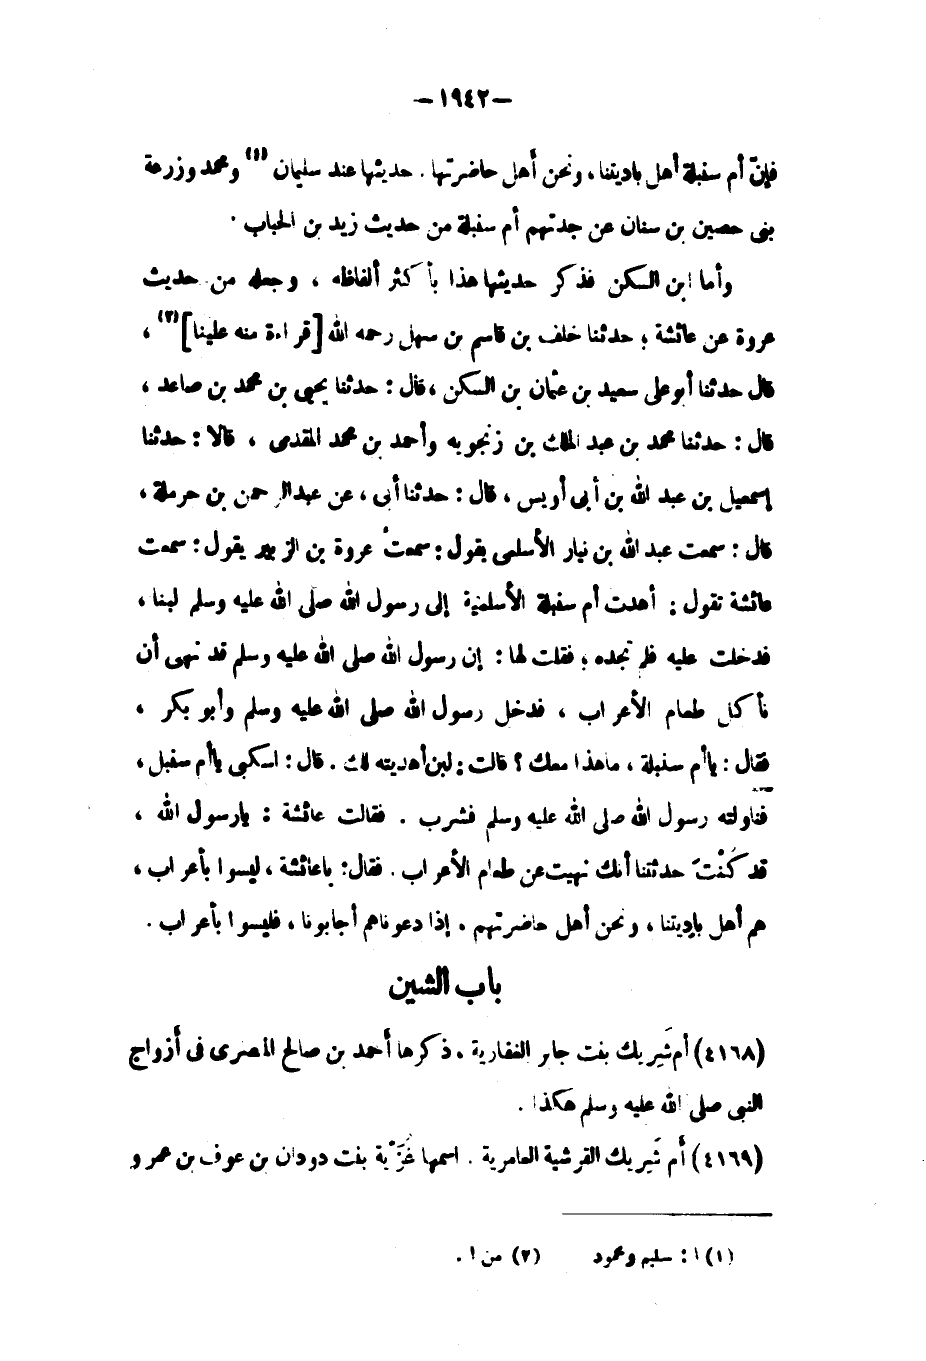 — ١٩٤٢ —
فإنّ أم سنبلة أهل باديتنا، ونحن أهل حاضرتها. حديثها عند سليمان (١) ومحمد وزرعة
بنى حصين بن سنان عن جدتهم أم سنبلة من حديث زيد بن الحباب.
وأما ابن السكن فذكر حديثها هذا بأكثر ألفاظه، وجعله من حديث
عروة عن عائشة؛ حدثنا خلف بن قاسم بن سهل رحمه الله [قراءة منه علينا](٢)،
قال حدثنا أبو على سعيد بن عثمان بن السكن، قال: حدثنا يحيى بن محمد بن صاعد،
قال: حدثنا محمد بن عبد الملك بن زنجويه وأحمد بن محمد المقدمى، قالا: حدثنا
إسمعيل بن عبد الله بن أبى أويس، قال: حدثنا أبى، عن عبد الرحمن بن حرملة،
قال: سمعت عبد الله بن نيار الأسلمى يقول: سمعتُ عروة بن الزبير يقول: سمعت
عائشة تقول: أهدت أم سنبلة الأسلمية إلى رسول الله صلى الله عليه وسلم لبنا،
فدخلت عليه فلم تجده؛ فقلت لها: إن رسول الله صلى الله عليه وسلم قد نهى أن
نأكل طعام الأعراب، فدخل رسول الله صلى الله عليه وسلم وأبو بكر،
فقال: يا أم سنبلة، ما هذا معك؟ قالت: لبن أهديته لك. قال: اسكبى يا أم سنبل،
فناولته رسول الله صلى الله عليه وسلم فشرب. فقالت عائشة: يا رسول الله،
قد كُنْتَ حدثتنا أنك نهيت عن طعام الأعراب. فقال: يا عائشة، ليسوا بأعراب،
هم أهل باديتنا، ونحن أهل حاضرتهم. إذا دعوناهم أجابونا، فليسوا بأعراب.
باب الشين
(٤١٦٨) أم شَرِيك بنت جابر الغفارية. ذكرها أحمد بن صالح المصرى فى أزواج
النبى صلى الله عليه وسلم هكذا.
(٤١٦٩) أم شَرِيك القرشية العامرية. اسمها غُزَيَّة بنت دودان بن عوف بن عمرو
(١) ا: سليم ومحمود (٢) من ا.